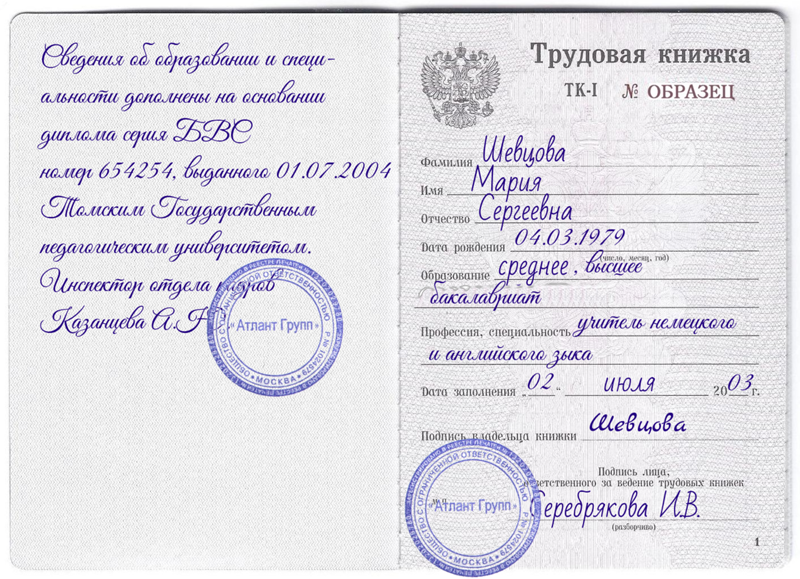 Сведения об образовании и специ-
альности дополнены на основании
диплома серия БВС
номер 654254, выданного 01.07.2004
Томским Государственным
педагогическим университетом.
Инспектор отдела кадров
Казанцева А.Н.
ОБЩЕСТВО С ОГРАНИЧЕННОЙ ОТВЕТСТВЕННОСТЬЮ
"Атлант Групп"
МОСКВА
Трудовая книжка
ТК-I № ОБРАЗЕЦ
Фамилия Шевцова
Имя Мария
Отчество Сергеевна
Дата рождения 04.03.1979
(число, месяц, год)
Образование среднее, высшее
бакалавриат
Профессия, специальность учитель немецкого
и английского зыка
Дата заполнения „02“ июля 2003 г.
Подпись владельца книжки Шевцова
Подпись лица,
ответственного за ведение трудовых книжек
М.П. Серебрякова И.В.
(разборчиво)
ОБЩЕСТВО С ОГРАНИЧЕННОЙ ОТВЕТСТВЕННОСТЬЮ
"Атлант Групп"
МОСКВА
1